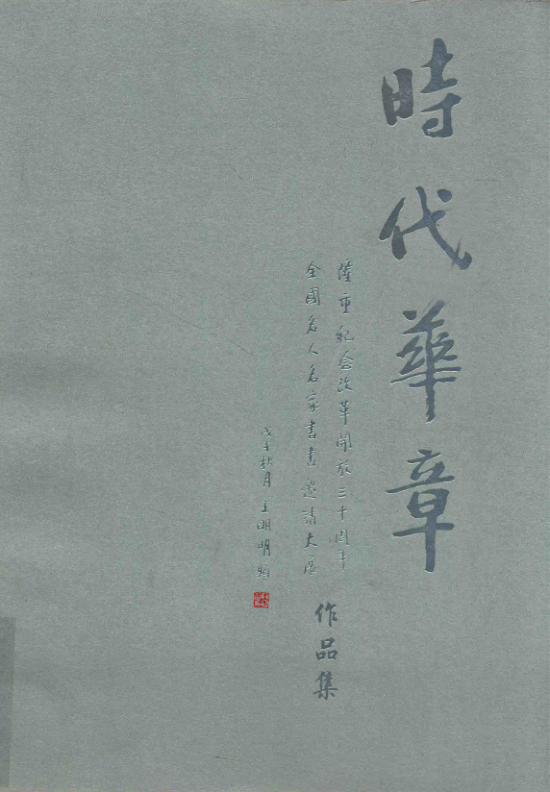 時代華章
隆重紀念改革開放三十周年
全國名人名家書畫邀請大展
作品集
戊子秋月王明明題